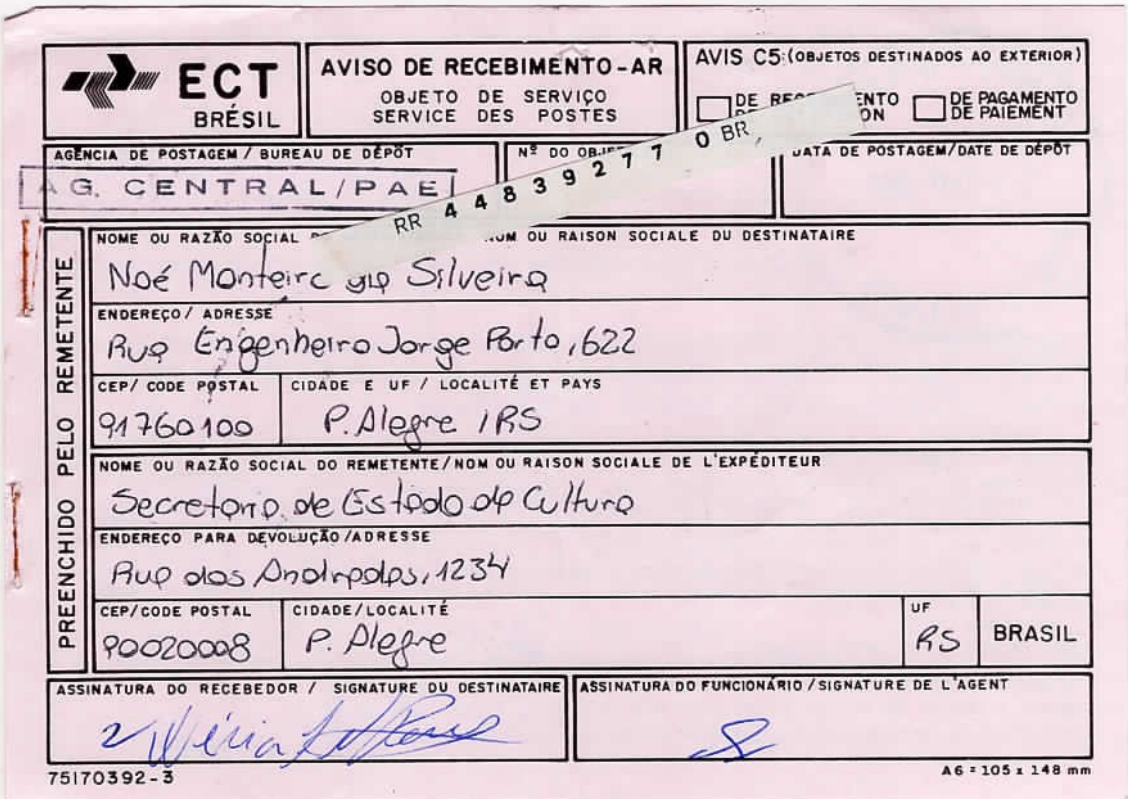 ECT
BRÉSIL
AVISO DE RECEBIMENTO-AR
OBJETO DE SERVIÇO
SERVICE DES POSTES
AVIS C5:(OBJETOS DESTINADOS AO EXTERIOR)
DE PAGAMENTO
DE PAIEMENT
AGÊNCIA DE POSTAGEM / BUREAU DE DÉPÔT
Nº DO
DATA DE POSTAGEM/DATE DE DÉPÔT
AG. CENTRAL/PAE
RR 4 4 8 3 9 2 7 7 0 BR
PREENCHIDO PELO REMETENTE
NOME OU RAZÃO SOCIAL OU RAISON SOCIALE DU DESTINATAIRE
Noé Monteiro Silveira
ENDEREÇO/ ADRESSE
Rua Engenheiro Jorge Porto, 622
CEP/ CODE POSTAL CIDADE E UF / LOCALITÉ ET PAYS
91760100 P. Alegre / RS
NOME OU RAZÃO SOCIAL DO REMETENTE/NOM OU RAISON SOCIALE DE L'EXPÉDITEUR
Secretaria de Estado da Cultura
ENDEREÇO PARA DEVOLUÇÃO/ADRESSE
Rua dos Andradas, 1234
CEP/CODE POSTAL CIDADE/LOCALITÉ UF
90020008 P. Alegre RS BRASIL
ASSINATURA DO RECEBEDOR / SIGNATURE DU DESTINATAIRE ASSINATURA DO FUNCIONÁRIO/SIGNATURE DE L'AGENT
75170392-3 A6 = 105 x 148 mm